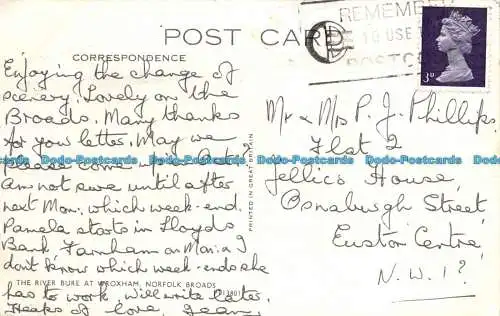 POST CARD
REMEMBER
TO USE
POSTCODE
3D
CORRESPONDENCE
Enjoying the change of
scenery. Lovely on the
Broads. Many thanks
for your letter. May we
please come in
Am not sure until after
next Mon. which week-end.
Pamela starts in Lloyds
Bank Farnham on Mon. & I
don't know which week-ends she
has to work. Will write later.
Heaps of love, Jean
Mr & Mrs P. J. Phillips,
Flat 2
Jellico House,
Osnaburgh Street,
Euston Centre,
N.W.1?
PRINTED IN GREAT BRITAIN
THE RIVER BURE AT WROXHAM, NORFOLK BROADS
Dodo-Postcards Dodo-Postcards Dodo-Postcards Dodo-Postcards Dodo-Postcards